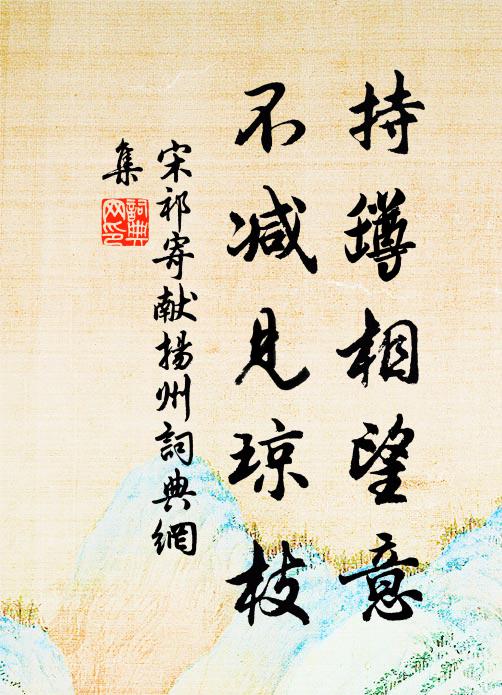 持罇相望意
不减見琼枝
宋祁寄献揚州詞典網
集
詞典网印